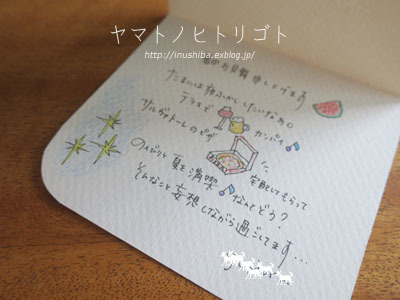 ヤマトノヒトリゴト
http://inushiba.exblog.jp/
お見舞 申し上げます
たまには夜ふかし したいなぁ。
テラスで カンパイ♪
サルヴァトーレのピザ
宅配してもらって
のんびりと 夏を満喫♪なんてどう？
そんなこと 妄想しながら過ごしてます…